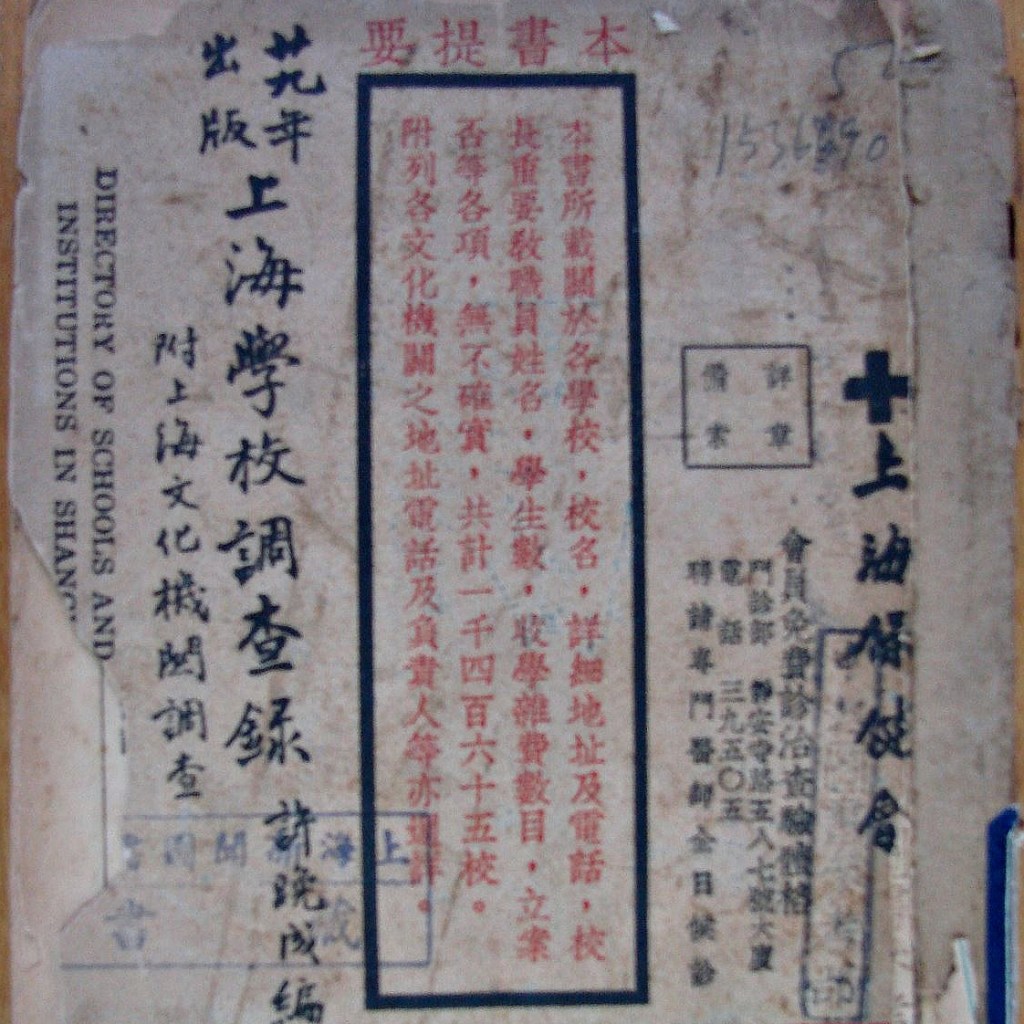 本書提要
本書所載關於各學校，校名，詳細地址及電話，校
長重要教職員姓名，學生數，收學雜費數目，立案
否等各項，無不確實，共計一千四百六十五校。
附列各文化機關之地址電話及負責人等亦週詳。
上海保健會
會員免費診治查驗體格
門診部 靜安寺路五八七號大廈
電話 三九五〇五
聘請專門醫師全日候診
詳章
備索
廿九年
出版
上海學校調查錄 許晚成編
附上海文化機關調查
DIRECTORY OF SCHOOLS AND
INSTITUTIONS IN
上海新聞圖書
藏書